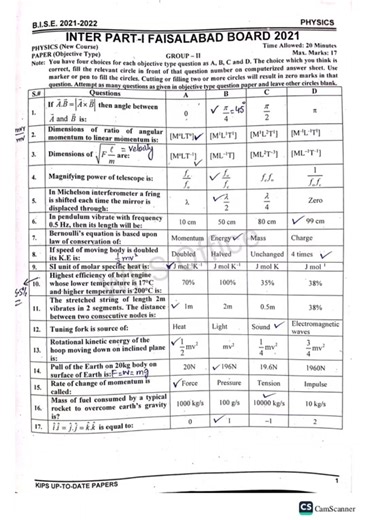 B.I.S.E. 2021-2022 PHYSICS
INTER PART-I FAISALABAD BOARD 2021
PHYSICS (New Course) Time Allowed: 20 Minutes
PAPER (Objective Type) GROUP – II Max. Marks: 17
Note: You have four choices for each objective type question as A, B, C and D. The choice which you think is
correct, fill the relevant circle in front of that question number on computerized answer sheet. Use
marker or pen to fill the circles. Cutting or filling two or more circles will result in zero marks in that
question. Attempt as many questions as given in objective type question paper and leave other circles blank.
S.# Questions A B C D
1. If A.B = |A × B| then angle between A and B is: 0 ✓ π/4 = 45° π/2 π
2. Dimensions of ratio of angular momentum to linear momentum is: [M°LT°] ✓ [M°L°T°] [M°L²T°]
3. Dimensions of √(F ℓ/m) are: = velocity [M°LT⁻¹] ✓ [ML⁻¹T] [ML²T⁻¹] [ML⁻²T⁻¹]
4. Magnifying power of telescope is:
5. In Michelson interferometer a fring is shifted each time the mirror is displaced through: λ ✓ λ/2 λ/4 Zero
6. In pendulum vibrate with frequency 0.5 Hz, then its length will be: 10 cm 50 cm 80 cm ✓ 99 cm
7. Bernoulli's equation is based upon law of conservation of: Momentum Energy ✓ Mass Charge
8. If speed of moving body is doubled its K.E is: ½mv² Doubled Halved Unchanged 4 times ✓
9. SI unit of molar specific heat is: ✓ J mol⁻¹K⁻¹ J mol K⁻¹ J mol K J mol⁻¹
10. Highest efficiency of heat engine whose lower temperature is 17°C and higher temperature is 200°C is: 70% 100% 35% 38%
11. The stretched string of length 2m vibrates in 2 segments. The distance between two consecutive nodes is: ✓ 1m 2m 0.5m 38%
12. Tuning fork is source of: Heat Light Sound ✓ Electromagnetic waves
13. Rotational kinetic energy of the hoop moving down on inclined plane is: ✓ 1/2 mv² mv² 1/4 mv² 3/4 mv²
14. Pull of the Earth on 20kg body on surface of Earth is: F=w=mg 20N ✓ 196N 19.6N 1960N
15. Rate of change of momentum is called: ✓ Force Pressure Tension Impulse
16. Mass of fuel consumed by a typical rocket to overcome earth's gravity is? 1000 kg/s 100 g/s 10000 kg/s ✓ 10 kg/s
17. î.î = ĵ.ĵ = k̂.k̂ is equal to: 0 ✓ 1 –1 2
KIPS UP-TO-DATE PAPERS 1
CS CamScanner